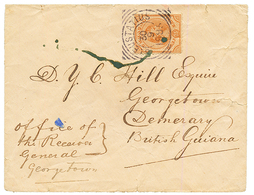 D. Y. C. Hill Esquire
Georgetown
Demerary
British Guiana
Office of
the Receiver
General
Georgetown